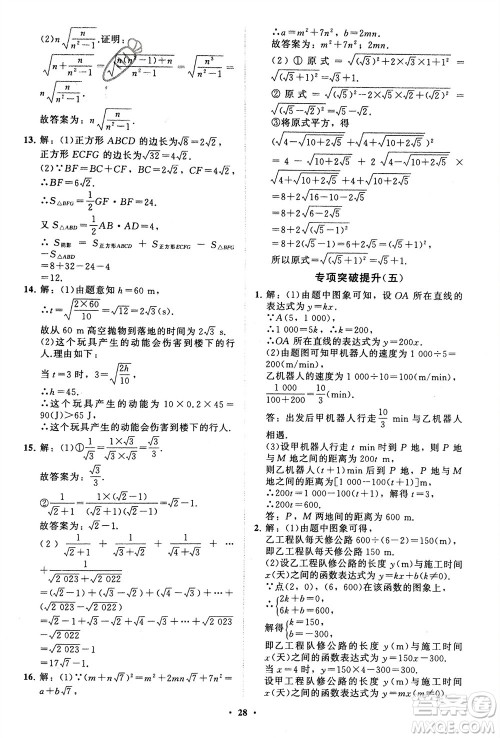 (2)n√(n/(n²-1)). 证明:
∵√(n+n/(n²-1))=√((n(n²-1)+n)/(n²-1))=√(n³/(n²-1))=
n√(n/(n²-1)).
故答案为:n√(n/(n²-1)).
13. 解:(1)正方形 ABCD 的边长为√8=2√2,
正方形 ECFG 的边长为√32=4√2.
(2)∵BF=BC+CF, BC=2√2, CF=4√2,
∴BF=6√2.
∴S△BFG=1/2 GF·BF=24.
又 S△ABD=1/2 AB·AD=4,
∴S阴影=S正方形ABCD+S正方形ECFG-S△BFG-
S△ABD
=8+32-24-4
=12.
14. 解:(1)由题意知 h=60 m,
∴t=√((2×60)/10)=√12=2√3(s).
故从 60 m 高空抛物到落地的时间为2√3 s.
(2)这个玩具产生的动能会伤害到楼下的行
人.理由:
当 t=3 时,3=√(2h/10),
∴h=45.
∴这个玩具产生的动能=10×0.2×45=
90(J)>65(J).
∴这个玩具产生的动能会伤害到楼下的行人.
15. 解:(1)①1/√3=√3/(√3×√3)=√3/3.
故答案为:√3/3.
②1/(√2+1)=(√2-1)/((√2-1)(√2+1))=√2-1.
故答案为:√2-1.
=√2-1+√3-√2+√4-√3+…+√2 023-
√2 022
=√2 023-1
=17√7-1.
a+b√7,
∴a=m²+7n²,b=2mn.
故答案为:m²+7n²;2mn.
(2)①原式=√((√3)²+2×√3×1+1²)=
√((√3+1)²)=√3+1.
8+2√((√5-1)²)
=8+2(√5-1)
=6+2√5
=(√5+1)²,
所以原式=√((√5+1)²)=√5+1.
专项突破提升(五)
1. 解:(1)由题中图象可知,设 OA 所在直线的
表达式为 y=kx.
∵A(5,1 000),∴1 000=5k.∴k=200.
∴OA 所在直线的表达式为 y=200x.
(2)由题中图象可知甲机器人的速度为
1 000÷5=200(m/min),
乙机器人的速度为 1 000÷10=100(m/min),
∴1 000/(100+200)=10/3(min).
答:出发后甲机器人行走10/3 min 与乙机器人
相遇.
(3)设甲机器人行走 t min 时到 P 地,P 地
与 M 地之间的距离为 200t m,
∴200t=1 000-100(t+1).∴t=3.
∴200t=600.
答:P,M 两地间的距离为 600 m.
2. 解:(1)由题中图象可得,
乙工程队每天修公路 600÷(6-2)=150(m),
即乙工程队每天修公路 150 m.
(2)设乙工程队修公路的长度 y(m)与施工时
间 x(天)之间的函数表达式为 y=kx+b.
∵点(2,0),(6,600)在该函数的图象上,
∴{2k+b=0, 6k+b=600,
解得{k=150, b=-300.
即乙工程队修公路的长度 y(m)与施工时间
x(天)之间的函数表达式为 y=150x-300.
设甲工程队修公路的长度 y(m)与施工时间
x(天)之间的函数表达式为 y=mx(m≠0).
28